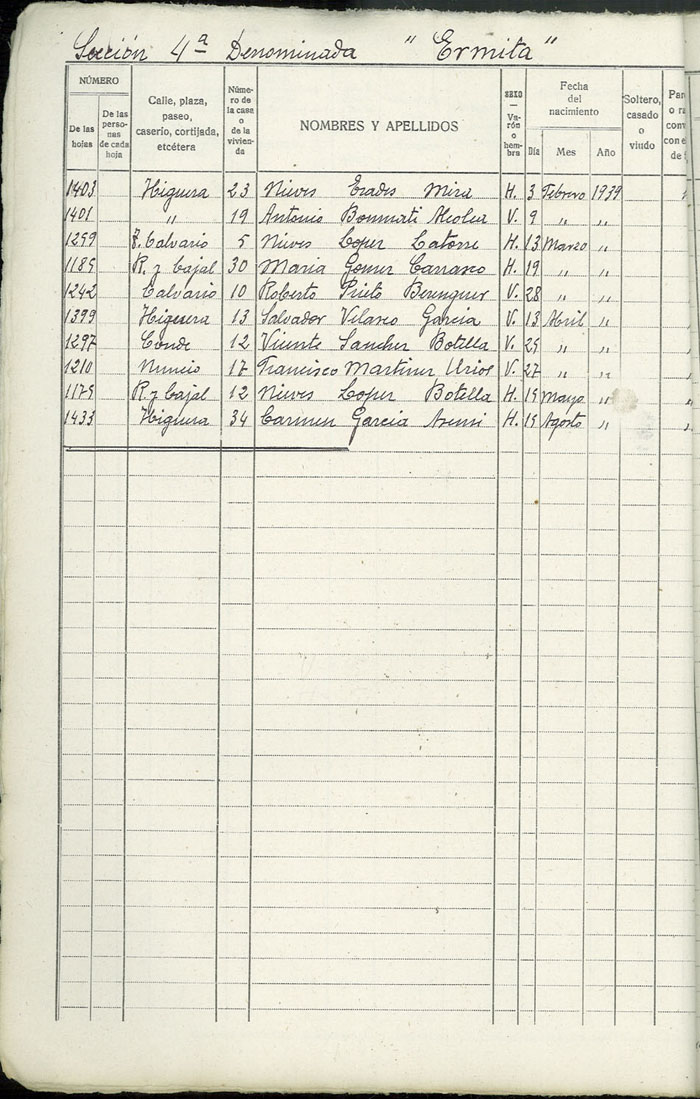 Sección 4ª Denominada "Ermita"
NÚMERO
De las hojas
De las personas de cada hoja
Calle, plaza, paseo, caserío, cortijada, etcétera
Número de la casa o de la vivienda
NOMBRES Y APELLIDOS
SEXO — Varón o hembra
Fecha del nacimiento
Día Mes Año
Soltero, casado o viudo
1403 Higuera 23 Nieves Erades Mira H. 3 Febrero 1939
1401 " 19 Antonio Bonmati Alcolea V. 9 " "
1259 Calvario 5 Nieves Lopez Latorre H. 13 Marzo "
1185 R. y Cajal 30 Maria Gomez Carrasco H. 19 " "
1242 Calvario 10 Roberto Prieto Berenguer V. 28 " "
1399 Higuera 13 Salvador Vilareo Garcia V. 13 Abril "
1297 Conde 12 Vicente Sanchez Botella V. 25 " "
1210 Nuncio 17 Francisco Martinez Uriol V. 27 " "
1175 R y Cajal 12 Nieves Lopez Botella H. 15 Mayo "
1433 Higuera 34 Carmen Garcia Asensi H. 15 Agosto "